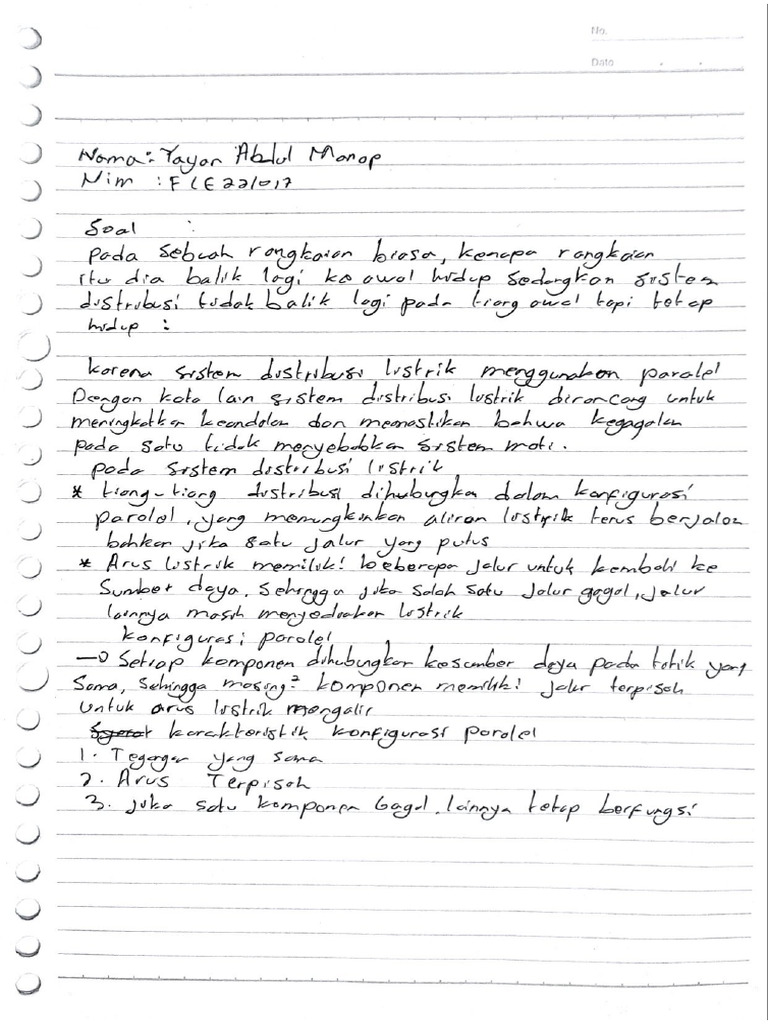 No.
Date
Nama: Yayan Abdul Manap
Nim : F1E221017
Soal :
pada sebuah rangkaian biasa, kenapa rangkaian
itu dia balik lagi ke awal hidup sedangkan sistem
distribusi tidak balik lagi pada tiang awal tapi tetap
hidup :
karena sistem distribusi listrik menggunakan paralel
Dengan kata lain sistem distribusi listrik dirancang untuk
meningkatkan keandalan dan memastikan bahwa kegagalan
pada satu tidak menyebabkan sistem mati.
pada sistem distribusi listrik,
* tiang-tiang distribusi dihubungkan dalam konfigurasi
paralel, yang memungkinkan aliran listrik terus berjalan
bahkan jika satu jalur yang putus
* Arus listrik memiliki beberapa jalur untuk kembali ke
Sumber daya. Sehingga jika salah satu jalur gagal, jalur
lainnya masih menyediakan listrik
konfigurasi paralel
→ Setiap komponen dihubungkan kesumber daya pada titik yang
Sama, sehingga masing² komponen memiliki jalur terpisah
untuk arus listrik mengalir
karakteristik konfigurasi paralel
1. Tegangan yang sama
2. Arus Terpisah
3. jika satu komponen Gagal. lainnya tetap berfungsi